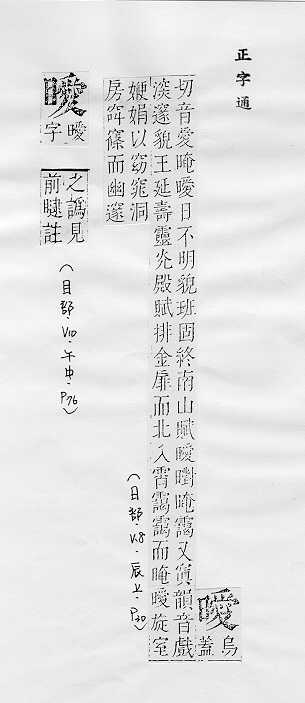 正字通
曖
烏
蓋
切音愛晻曖日不明貌班固終南山賦曖晻靄又寘韻音戲
深邃貌王延壽靈灮殿賦排金扉而北入霄靄靄而晻曖旋室
娟以窈窕洞
房而幽邃
(日部·V8·辰上·P30)
瞹
曖
字
之譌見
前註
(目部·V10·午中·P76)